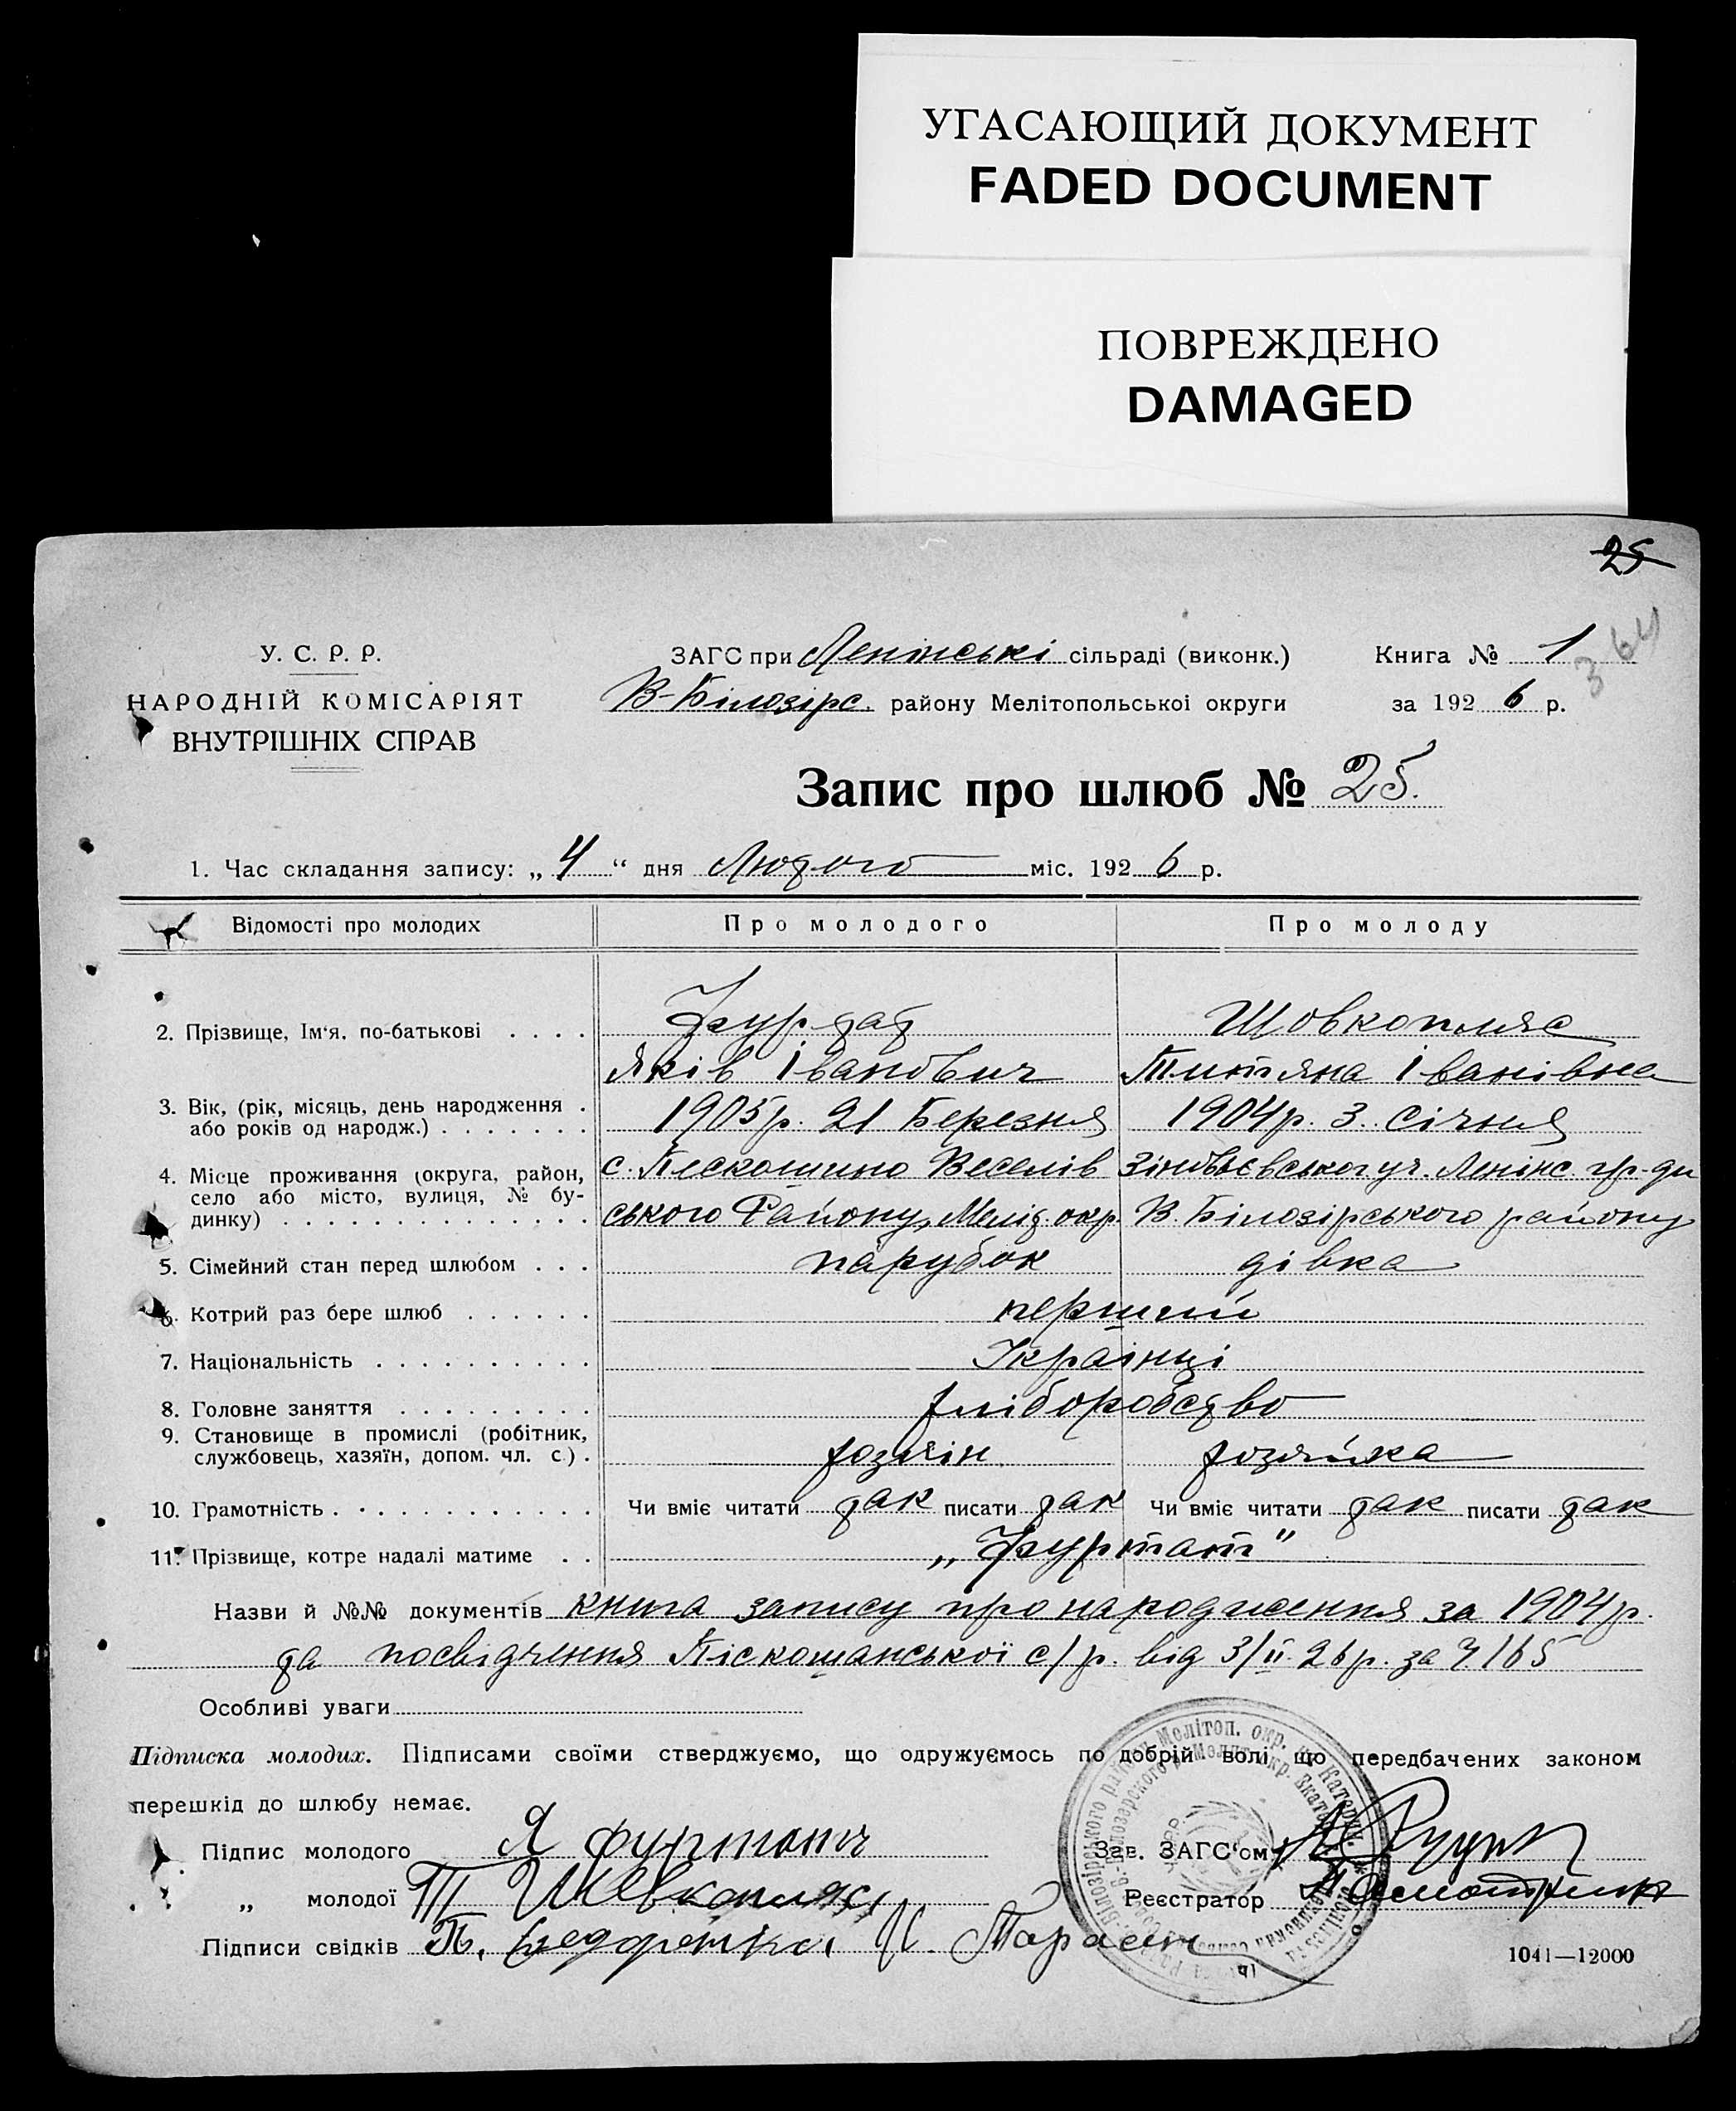 УГАСАЮЩИЙ ДОКУМЕНТ
FADED DOCUMENT
ПОВРЕЖДЕНО
DAMAGED
25
364
У. С. Р. Р.
НАРОДНІЙ КОМІСАРІЯТ
ВНУТРІШНІХ СПРАВ
ЗАГС при Ленінські сільраді (виконк.) Книга № 1
В-Білозірс. району Мелітопольської округи за 1926 р.
Запис про шлюб № 25.
1. Час складання запису: „ 4 “ дня Лютого міс. 1926 р.
Відомості про молодих Про молодого Про молоду
2. Прізвище, Ім‘я, по-батькові . . . . Фуртат Шовкопляс
Яків Іванович Титяна Іванівна
3. Вік, (рік, місяць, день народження . або років од народж.) . . . . . . . 1905р. 21 Березня 1904р. 3. Січня
4. Місце проживання (округа, район, с. Пескошино Веселів Зінов'євської Ленінс.
село або місто, вулиця, № бу-
динку) . . . . . . . . . . . . . . . ського Району, Меліт. окр. В. Білозірського району
5. Сімейний стан перед шлюбом . . . парубок дівка
6. Котрий раз бере шлюб . . . . . . перший
7. Національність . . . . . . . . . . Українці
8. Головне заняття . . . . . . . . . хліборобство
9. Становище в промислі (робітник,
службовець, хазяїн, допом. чл. с.) . хозяін хозяйка
10. Грамотність . . . . . . . . . . . . Чи вміє читати так писати так Чи вміє читати так писати так
11. Прізвище, котре надалі матиме . . „Фуртат“
Назви й №№ документів книга запису про народження за 1904р.
та посвідчення Піскошанської с/р. від 3/II 26р. за № 165
Особливі уваги
Підписка молодих. Підписами своїми стверджуємо, що одружуємось по добрій волі, що передбачених законом
перешкід до шлюбу немає.
Підпис молодого Я Фуртат Зав. ЗАГС‘ом
„ молодої Т Шевкопляс Реєстратор
Підписи свідків П. Федоренко. К. Тарасен
1041—12000